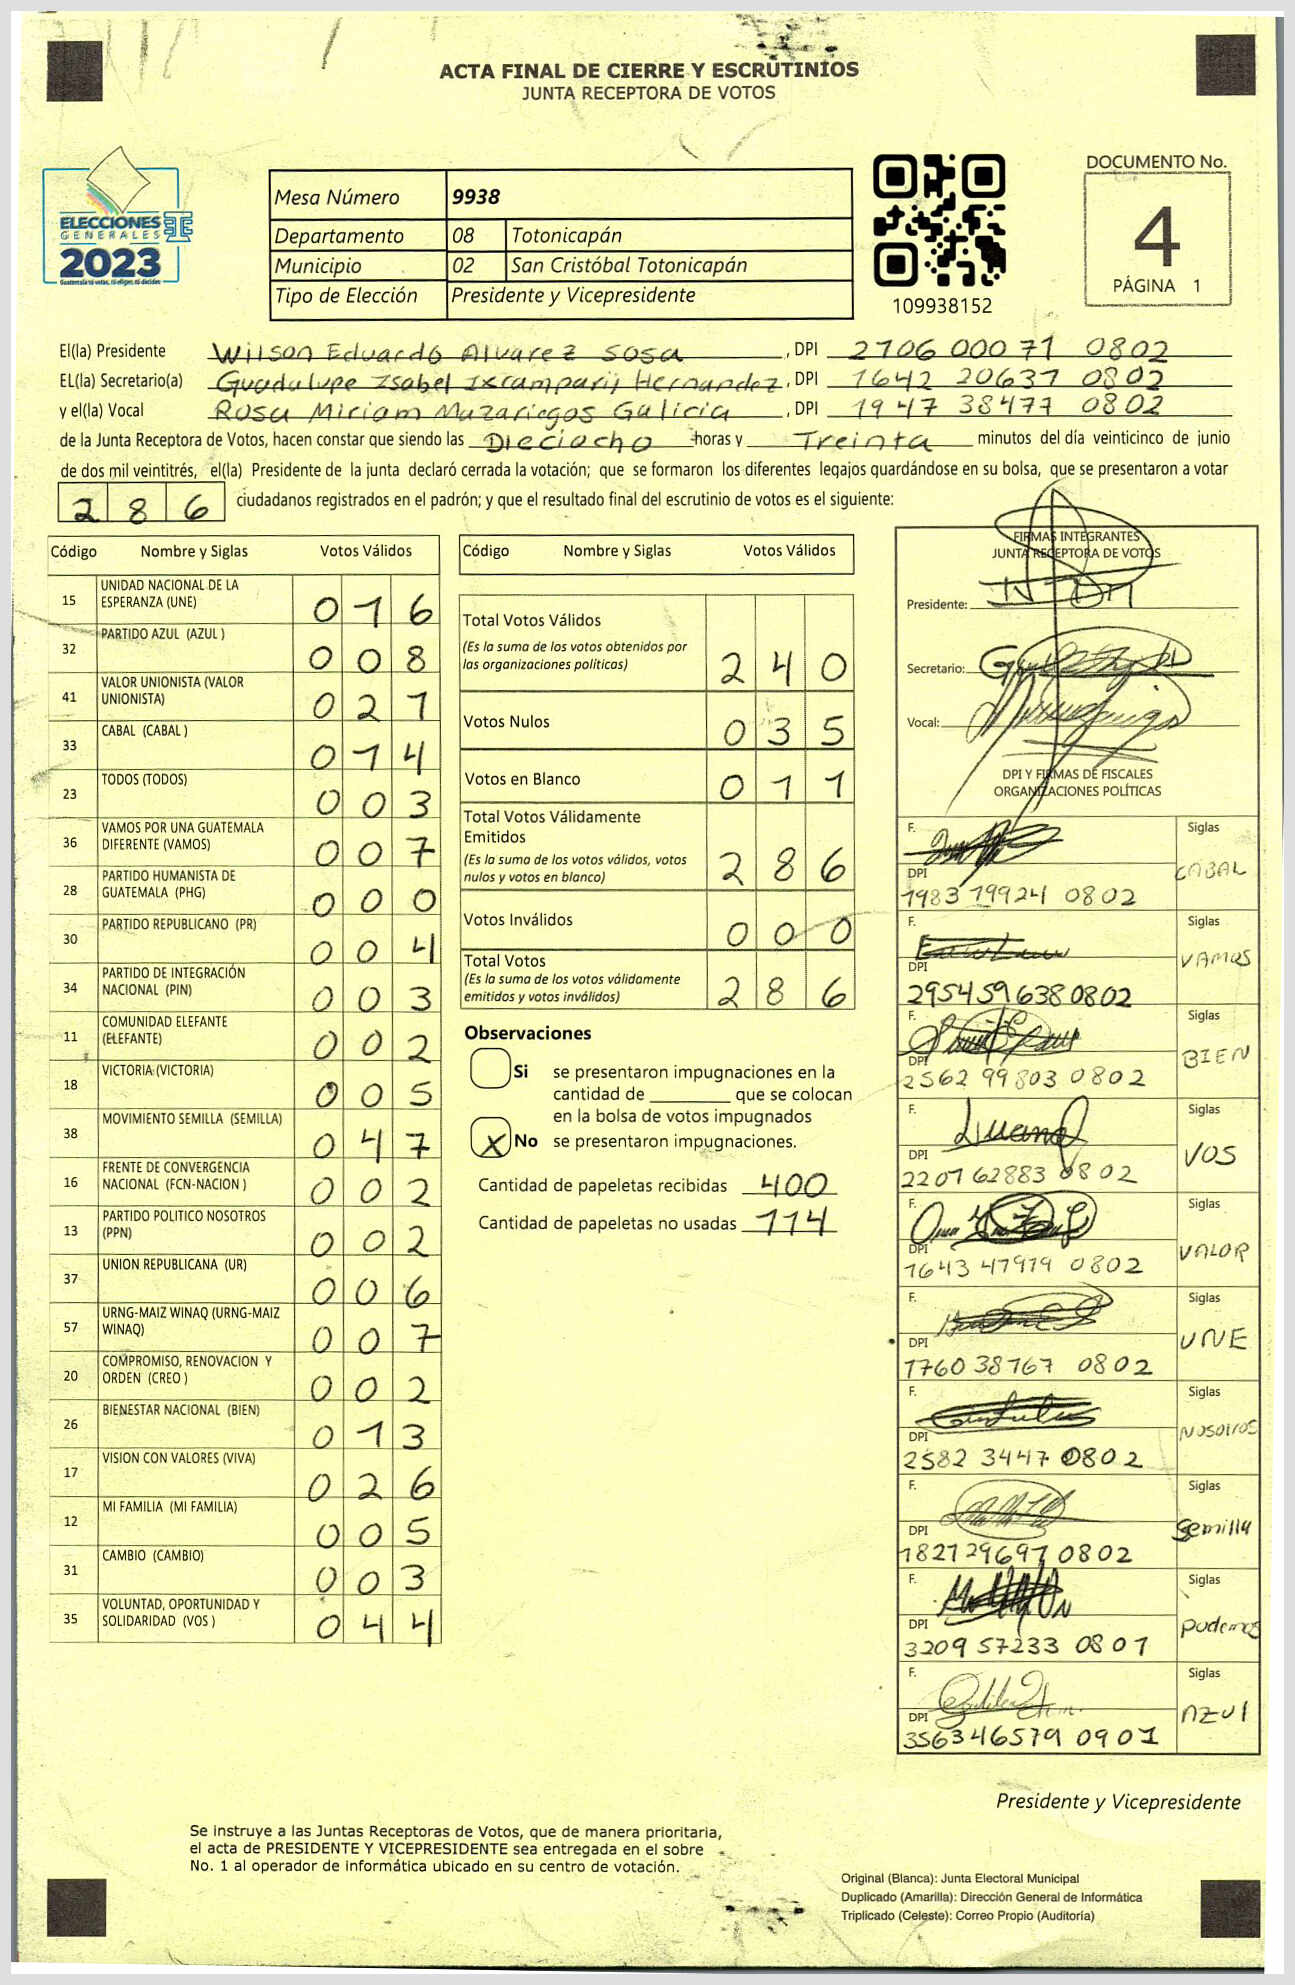 ACTA FINAL DE CIERRE Y ESCRUTINIOS
JUNTA RECEPTORA DE VOTOS
ELECCIONES
GENERALES
2023
Guatemala tú votas, tú eliges, tú decides
Mesa Número 9938
Departamento 08 Totonicapán
Municipio 02 San Cristóbal Totonicapán
Tipo de Elección Presidente y Vicepresidente
109938152
DOCUMENTO No.
4
PÁGINA 1
El(la) Presidente Wilson Eduardo Alvarez Sosa, DPI 2706 00071 0802
EL(la) Secretario(a) Guadalupe Isabel Ixcamparij Hernandez, DPI 1642 20637 0802
y el(la) Vocal Rosa Miriam Mazariegos Galicia, DPI 1947 38477 0802
de la Junta Receptora de Votos, hacen constar que siendo las Dieciocho horas y Treinta minutos del día veinticinco de junio
de dos mil veintitrés, el(la) Presidente de la junta declaró cerrada la votación; que se formaron los diferentes legajos guardándose en su bolsa, que se presentaron a votar
286 ciudadanos registrados en el padrón; y que el resultado final del escrutinio de votos es el siguiente:
Código Nombre y Siglas Votos Válidos
15 UNIDAD NACIONAL DE LA ESPERANZA (UNE) 016
32 PARTIDO AZUL (AZUL ) 008
41 VALOR UNIONISTA (VALOR UNIONISTA) 021
33 CABAL (CABAL ) 014
23 TODOS (TODOS) 003
36 VAMOS POR UNA GUATEMALA DIFERENTE (VAMOS) 007
28 PARTIDO HUMANISTA DE GUATEMALA (PHG) 000
30 PARTIDO REPUBLICANO (PR) 004
34 PARTIDO DE INTEGRACIÓN NACIONAL (PIN) 003
11 COMUNIDAD ELEFANTE (ELEFANTE) 002
18 VICTORIA (VICTORIA) 005
38 MOVIMIENTO SEMILLA (SEMILLA) 047
16 FRENTE DE CONVERGENCIA NACIONAL (FCN-NACION ) 002
13 PARTIDO POLITICO NOSOTROS (PPN) 002
37 UNION REPUBLICANA (UR) 006
57 URNG-MAIZ WINAQ (URNG-MAIZ WINAQ) 007
20 COMPROMISO, RENOVACION Y ORDEN (CREO ) 002
26 BIENESTAR NACIONAL (BIEN) 013
17 VISION CON VALORES (VIVA) 026
12 MI FAMILIA (MI FAMILIA) 005
31 CAMBIO (CAMBIO) 003
35 VOLUNTAD, OPORTUNIDAD Y SOLIDARIDAD (VOS ) 044
Código Nombre y Siglas Votos Válidos
Total Votos Válidos 240
(Es la suma de los votos obtenidos por
las organizaciones políticas)
Votos Nulos 035
Votos en Blanco 011
Total Votos Válidamente
Emitidos 286
(Es la suma de los votos válidos, votos
nulos y votos en blanco)
Votos Inválidos 000
Total Votos 286
(Es la suma de los votos válidamente
emitidos y votos inválidos)
Observaciones
Si se presentaron impugnaciones en la
cantidad de ________ que se colocan
en la bolsa de votos impugnados
X No se presentaron impugnaciones.
Cantidad de papeletas recibidas 400
Cantidad de papeletas no usadas 114
FIRMAS INTEGRANTES
JUNTA RECEPTORA DE VOTOS
Presidente:
Secretario:
Vocal:
DPI Y FIRMAS DE FISCALES
ORGANIZACIONES POLÍTICAS
F. Siglas
DPI CABAL
1983 19924 0802
F. Siglas
DPI VAMOS
2954596380802
F. Siglas
DPI BIEN
2562 99803 0802
F. Siglas
DPI VOS
2201 62883 0802
F. Siglas
DPI VALOR
1643 47979 0802
F. Siglas
DPI UNE
1760 38767 0802
F. Siglas
DPI NOSOTROS
2582 3447 0802
F. Siglas
DPI Semilla
1821296970802
F. Siglas
DPI Podemos
3209 57233 0801
F. Siglas
DPI AZUL
356346579 0901
Presidente y Vicepresidente
Se instruye a las Juntas Receptoras de Votos, que de manera prioritaria,
el acta de PRESIDENTE Y VICEPRESIDENTE sea entregada en el sobre
No. 1 al operador de informática ubicado en su centro de votación.
Original (Blanca): Junta Electoral Municipal
Duplicado (Amarilla): Dirección General de Informática
Triplicado (Celeste): Correo Propio (Auditoría)